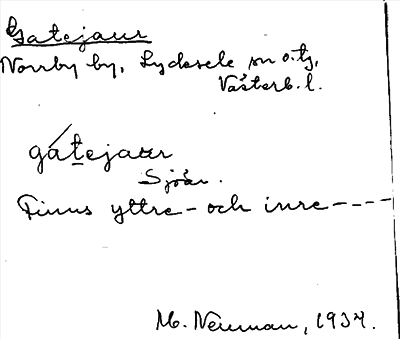 Gatejaur
Norrby by, Lycksele sn o. tg,
Västerb. l.
gátejaur
Sjöar.
Finns yttre- och inre----
M. Neuman, 1934.